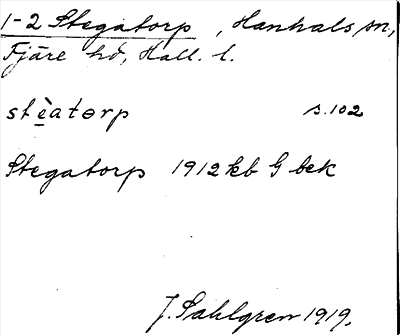 1-2 Stegatorp, Hanhals sn,
Fjäre hd, Hall. l.
stèatɵrp s. 102
Stegatorp 1912 kb G bek
J. Sahlgren 1919.